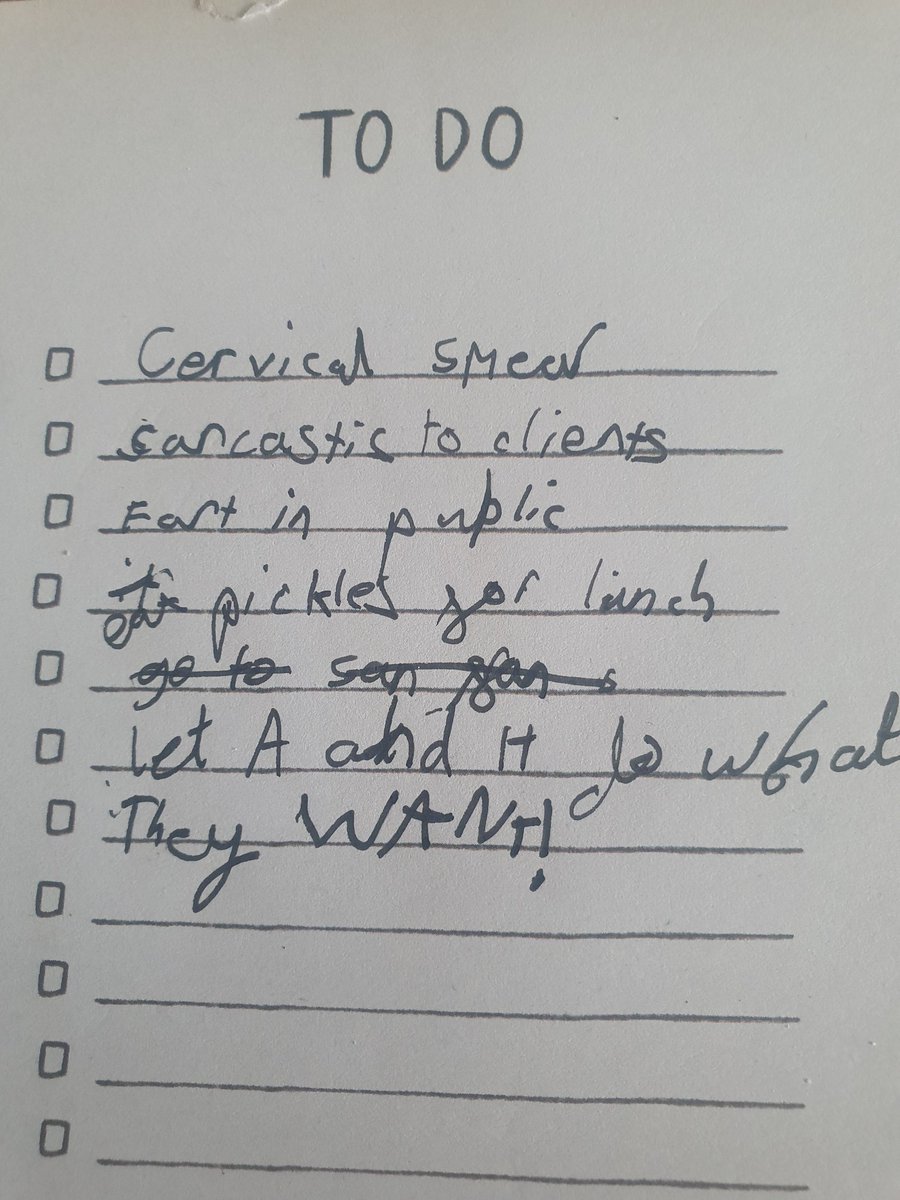 TO DO
Cervical smear
sarcastic to clients
Fart in public
eat pickles for lunch
go to san
Let A and H do what
They WANT!